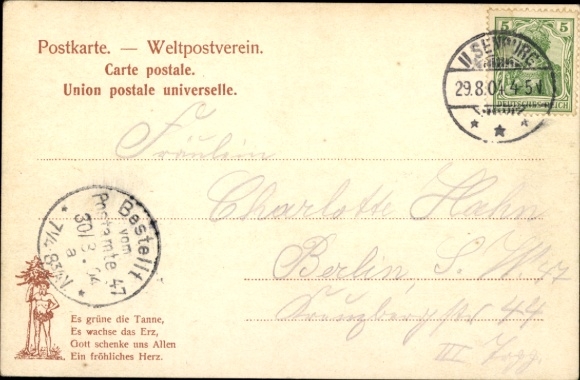 Postkarte. — Weltpostverein.
Carte postale.
Union postale universelle.
5 5
DEUTSCHES REICH
ILSENBURG
29.8.04 4-5 V.
Fräulein
Charlotte Hahn
Berlin, S. W. 47
44
III Trpp.
Bestellt
vom
Postamte 47
30/8.04
a
7¼-8¼ V.
Es grüne die Tanne,
Es wachse das Erz,
Gott schenke uns Allen
Ein fröhliches Herz.